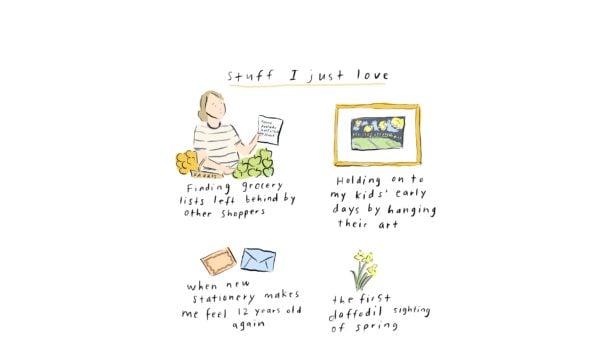 stuff I just love
Finding grocery
lists left behind by
other shoppers
Holding on to
my kids' early
days by hanging
their art
when new
stationery makes
me feel 12 years old
again
the first
daffodil sighting
of spring